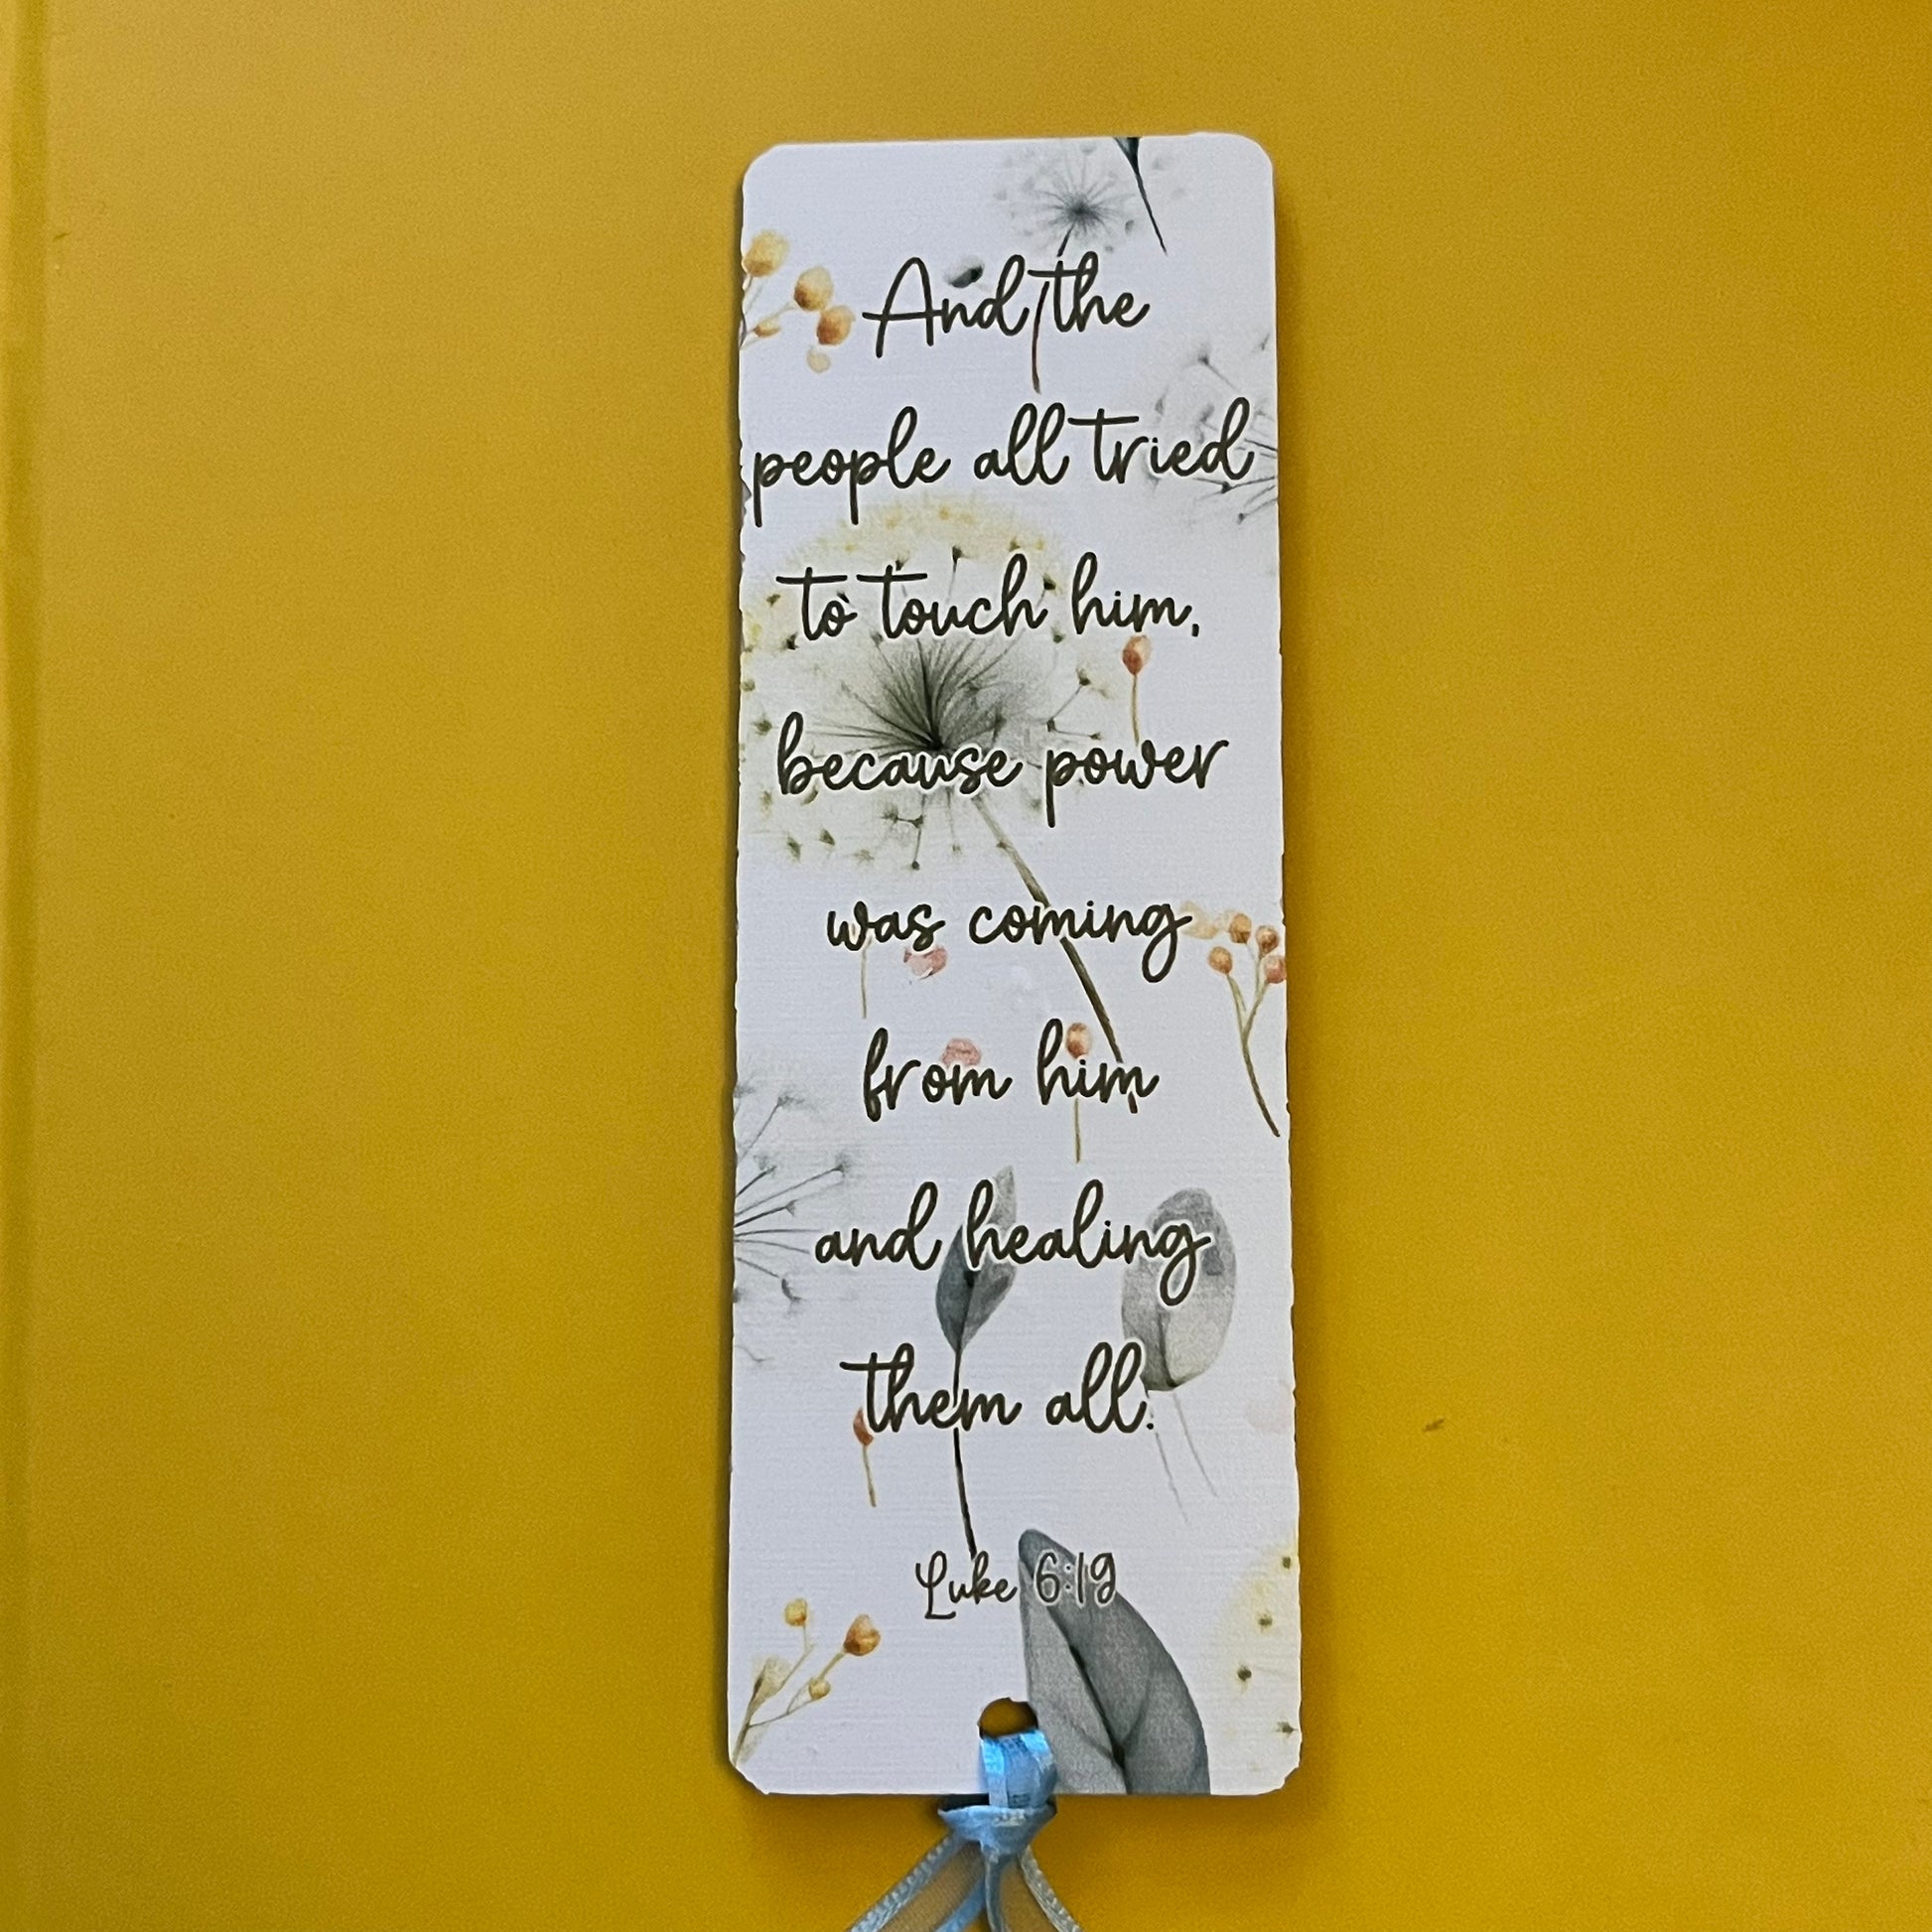 And the
people all tried
to touch him,
because power
was coming
from him
and healing
them all.
Luke 6:19